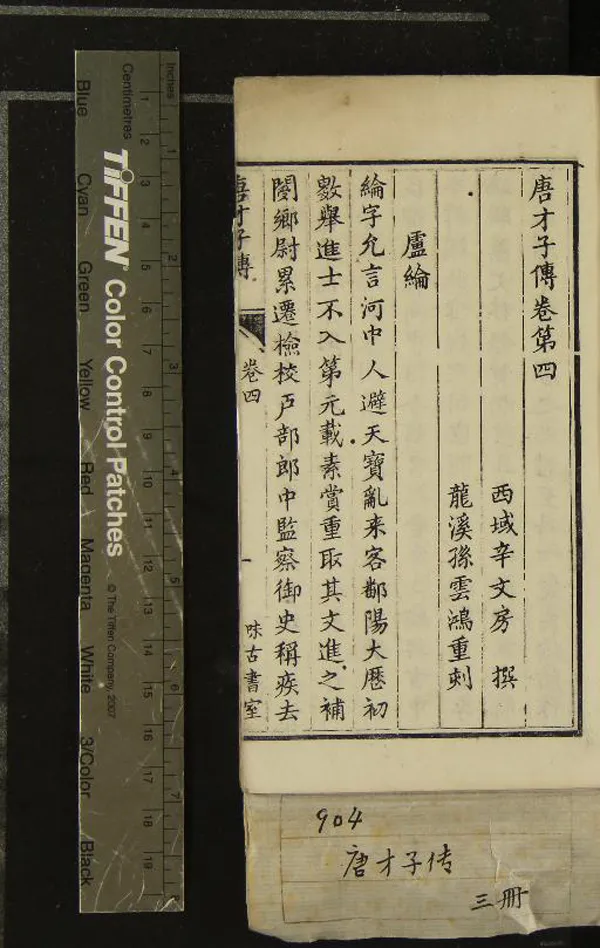 唐才子傳卷第四
西域辛文房 撰
龍溪孫雲鴻重刺
盧綸
綸字允言河中人避天寶亂来客鄱陽大厯初
數舉進士不入第元載素賞重取其文進之補
閿鄉尉累遷檢校戶部郎中監察御史稱疾去
唐才子傳
卷四
一
味古書室
904
唐才子传
三册
Inches
Centimetres
1 2 3 4 5 6 7 8
1 2 3 4 5 6 7 8 9 10 11 12 13 14 15 16 17 18 19
TIFFEN® Color Control Patches
© The Tiffen Company, 2007
Blue
Cyan
Green
Yellow
Red
Magenta
White
3/Color
Black